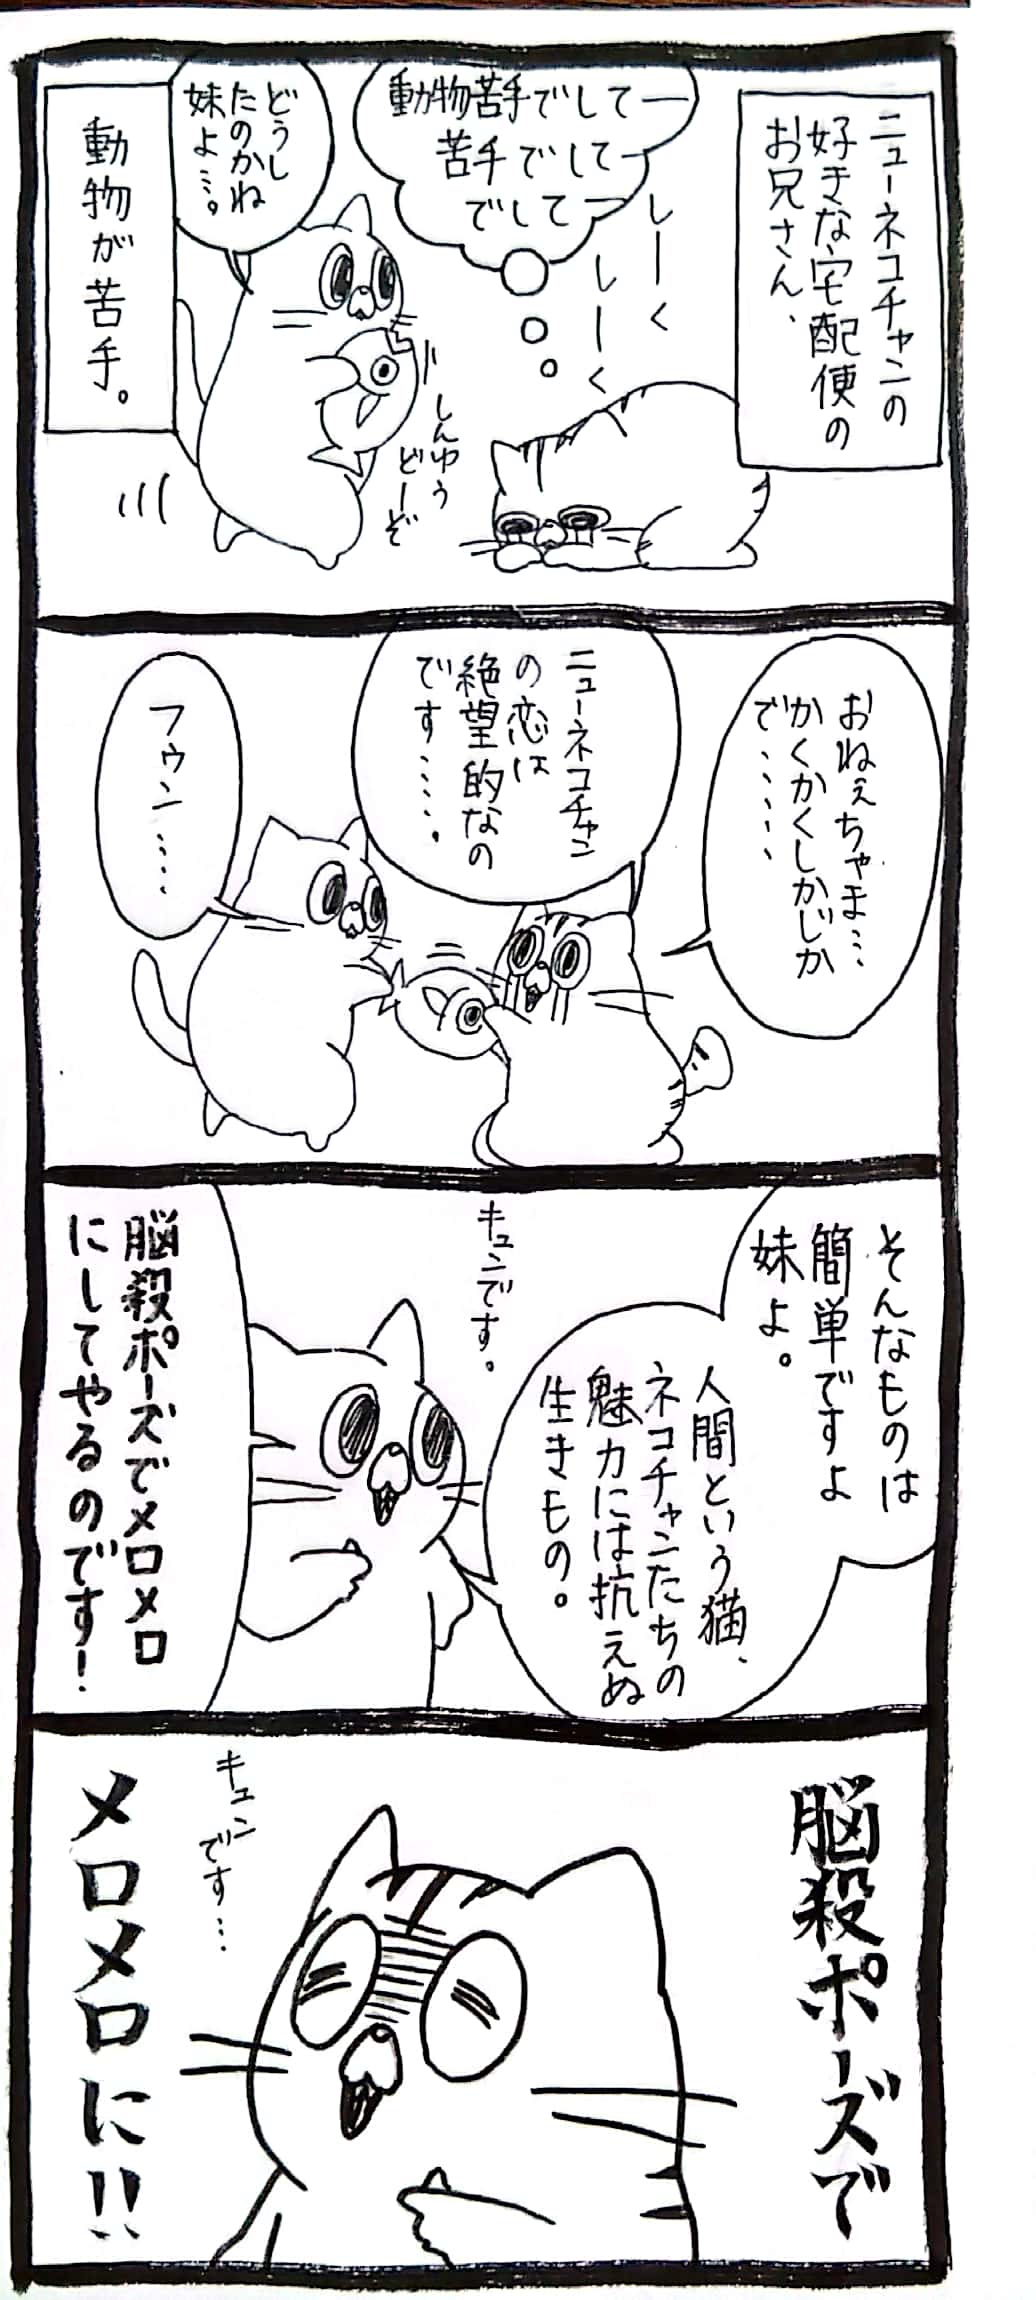 ニューネコチャンの
好きな宅配便の
お兄さん、
動物苦手でしてー
苦手でしてー
でしてー
しーく
しーく
どうし
たのかね
妹よ…。
しんゆう
どーぞ
動物が苦手。
おねぇちゃま…
かくかくしかじか
で……
ニューネコチャン
の恋は
絶望的なの
です……。
フゥン……
そんなものは
簡単ですよ
妹よ。
人間という猫、
ネコチャンたちの
魅力には抗えぬ
生きもの。
キュンです。
脳殺ポーズでメロメロ
にしてやるのです！
脳殺ポーズで
キュン
です…
メロメロに!!